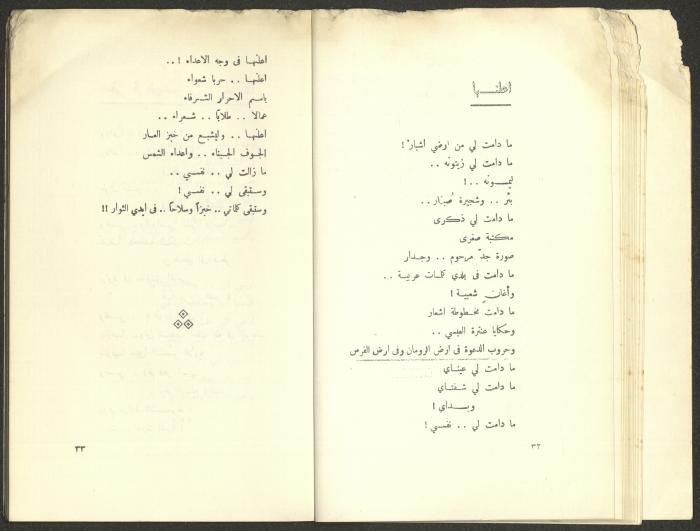 اعلنـــها
ما دامت لي من ارضي أشبار !
ما دامت لي زيتونه . .
ليمـــونه . . !
بئر . . وشجيرة صُبّار . .
ما دامت لي ذكرى
مكتبة صغرى
صورة جدّ مرحوم . . وجدار
ما دامت فى بلدي كلمات عربية . .
وأغانٍ شعبية !
ما دامت مخطوطة اشعار
وحكايا عنترة العبسي . .
وحروب الدعوة فى ارض الرومان وفى ارض الفرس
ما دامت لي عيناي
ما دامت لي شفتاي
ويـــداي !
ما دامت لي . . نفسي !
٣٢
اعلنها فى وجه الاعداء ! . .
اعلنها . . حربا شعواء
باسم الاحرار الشرفاء
عمالا . . طلابًا . . شعراء . .
اعلنها . . وليشبع من خبز العار
الجوف الجبناء . . واعداء الشمس
ما زالت لي . . نفسي . .
وستبقى لي . . نفسي !
وستبقى كلماتي . . خبزاً وسلاحاً . . فى ايدي الثوار !!
٣٣